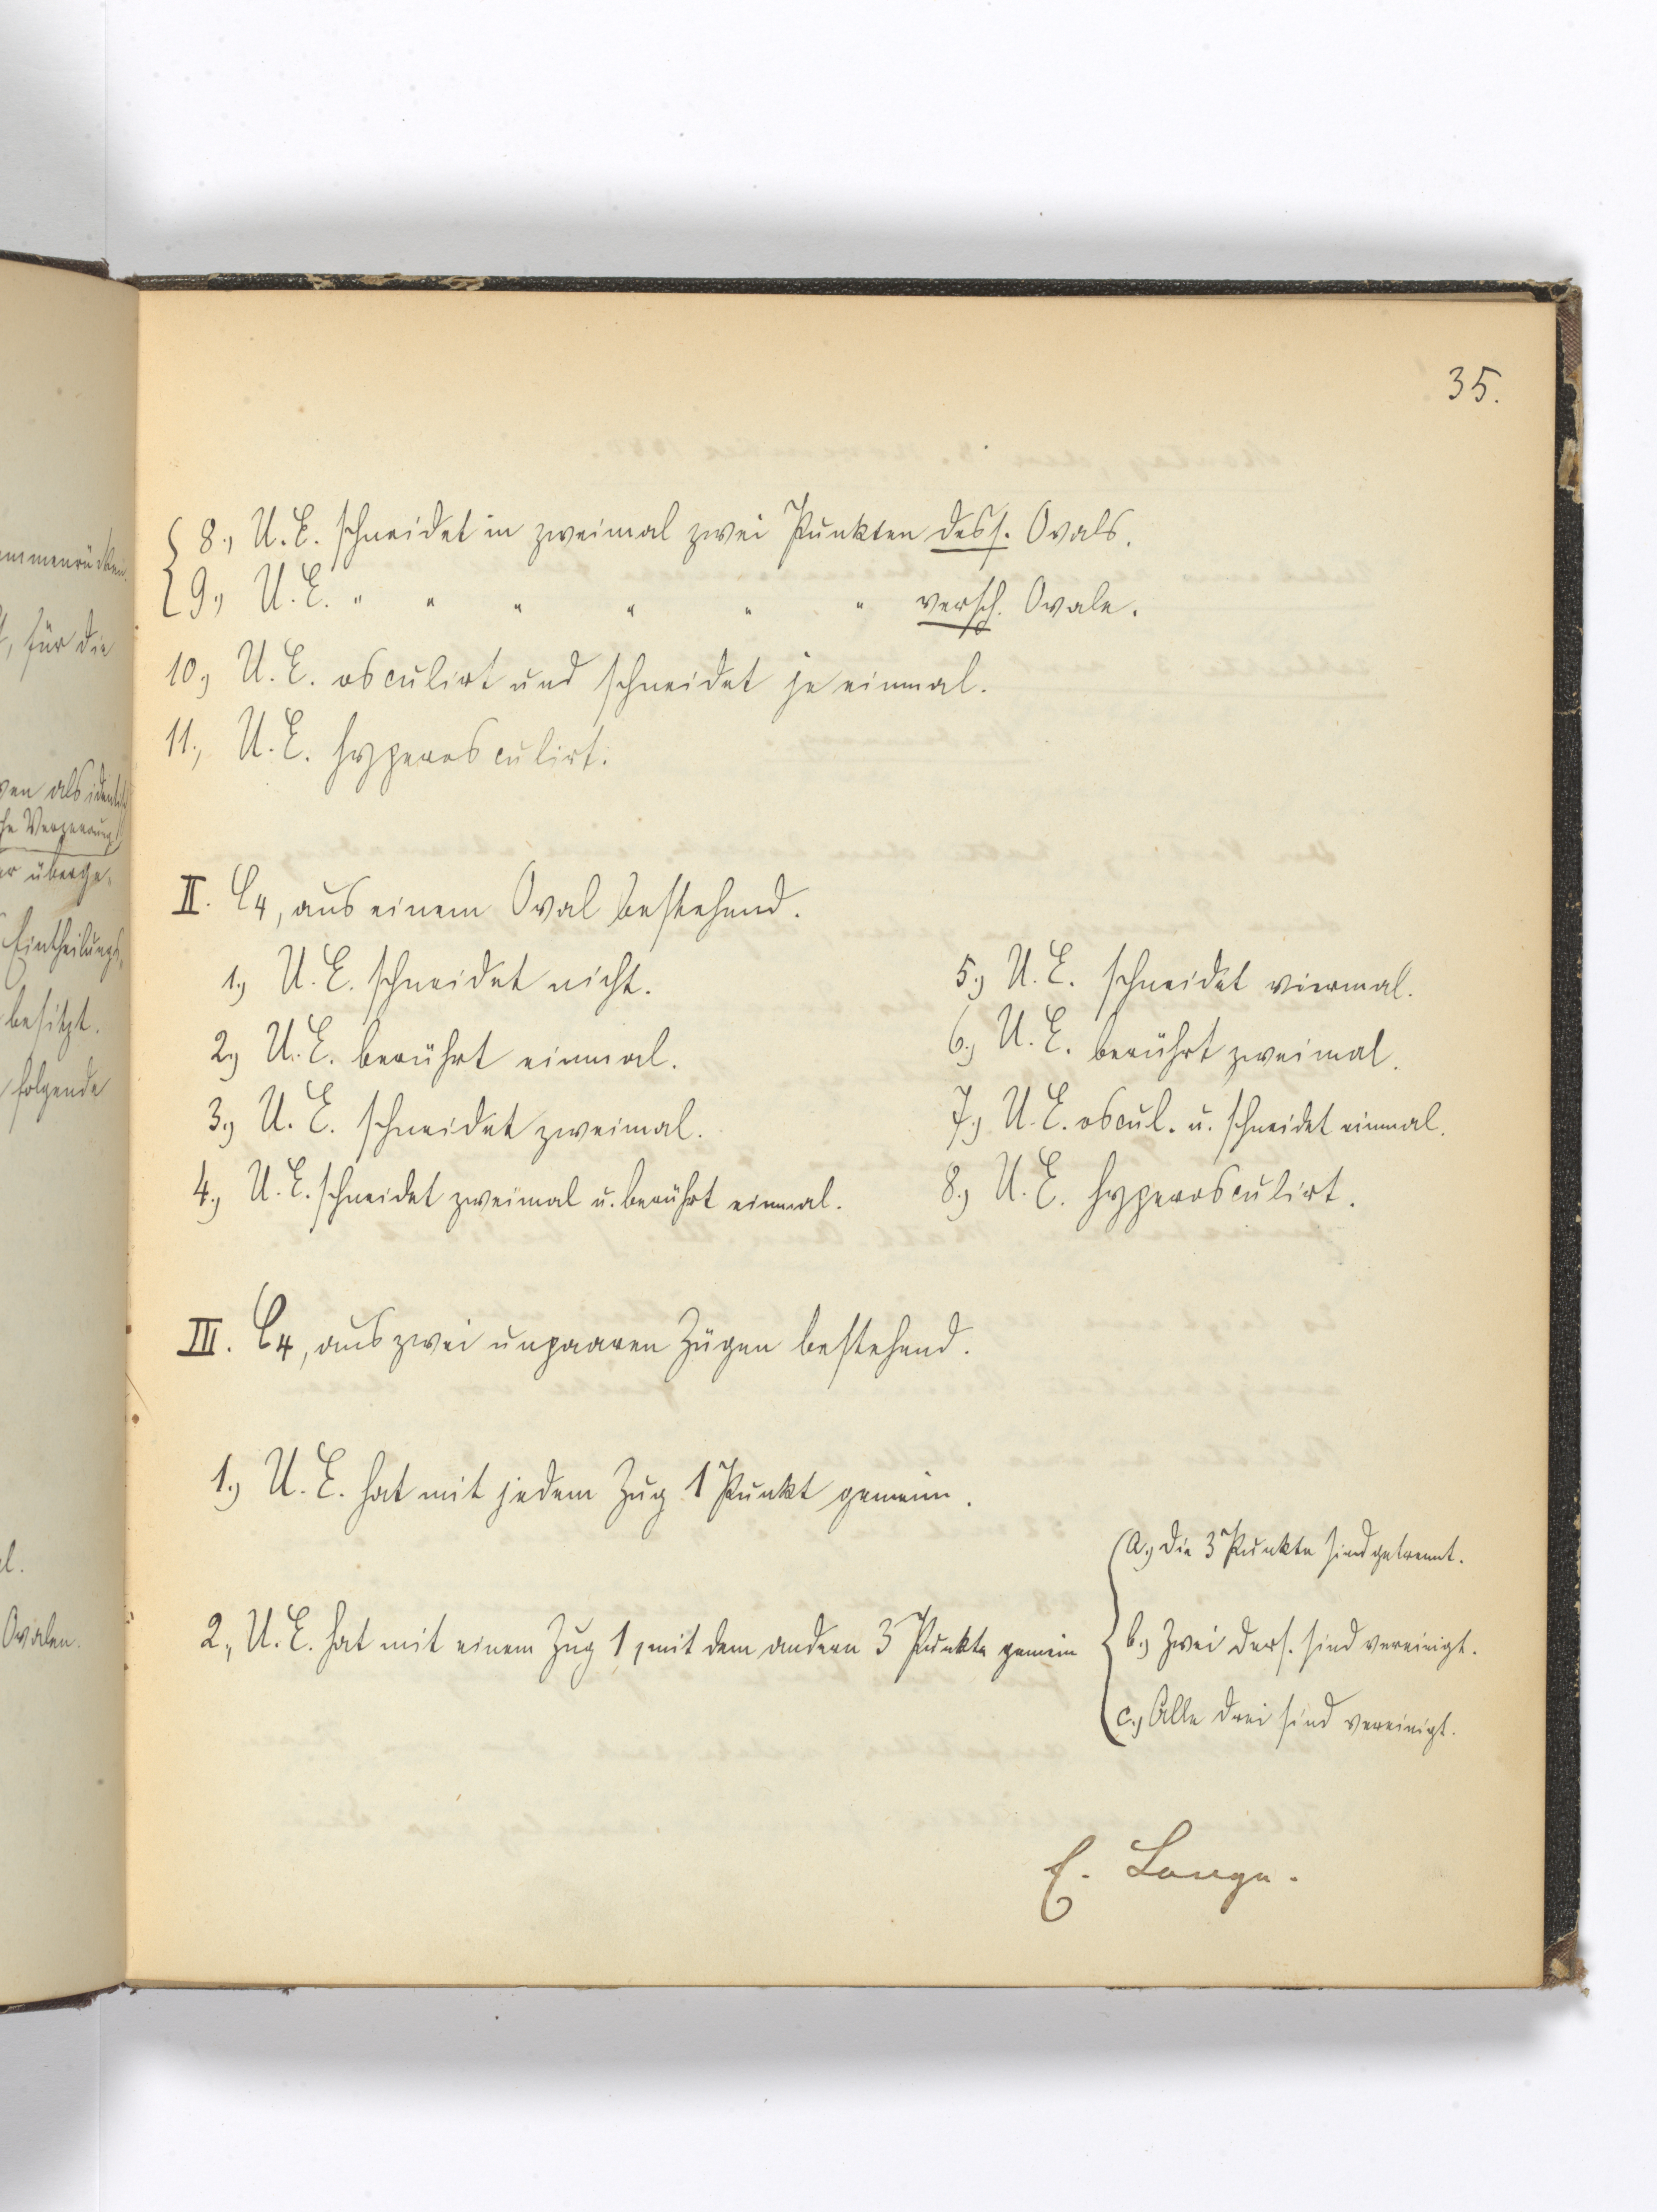 35.
8., U. E. schneidet in zweimal zwei Punkten dess. Ovals.
9., U. E. " " " " " " versch. Ovale.
10., U. E. osculirt und schneidet je einmal.
11., U. E. hyperosculirt.
II. C4, aus einem Oval bestehend.
1., U. E. schneidet nicht.
2., U. E. berührt einmal.
3., U. E. schneidet zweimal.
4., U. E. schneidet zweimal u. berührt einmal.
5., U. E. schneidet viermal.
6., U. E. berührt zweimal.
7., U. E. oscul. u. schneidet einmal.
8., U. E. hyperosculirt.
III. C4, aus zwei unpaaren Zügen bestehend.
1., U. E. hat mit jedem Zug 1 Punkt gemein.
2., U. E. hat mit einem Zug 1, mit dem andern 3 Punkte gemein
a., Die 3 Punkte sind getrennt.
b., Zwei ders. sind vereinigt.
c., Alle drei sind vereinigt.
E. Lange.
für die
als
überge-
Eintheilungs-
besitzt.
folgende
Ovalen.